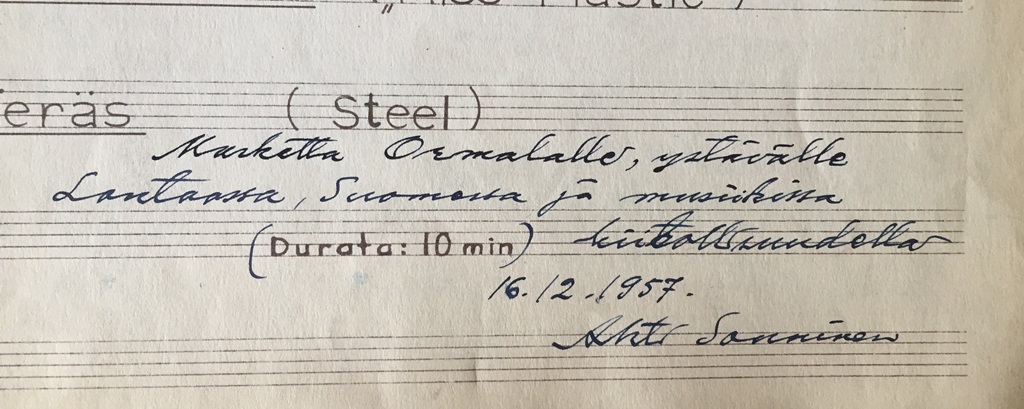 „Miss Plastic")
eräs (Steel)
Marketta Ormalalle, ystävälle
Lontoossa, Suomessa ja musiikissa
(Durata: 10 min) kiitollisuudella
16.12.1957.
Ahti Sonninen